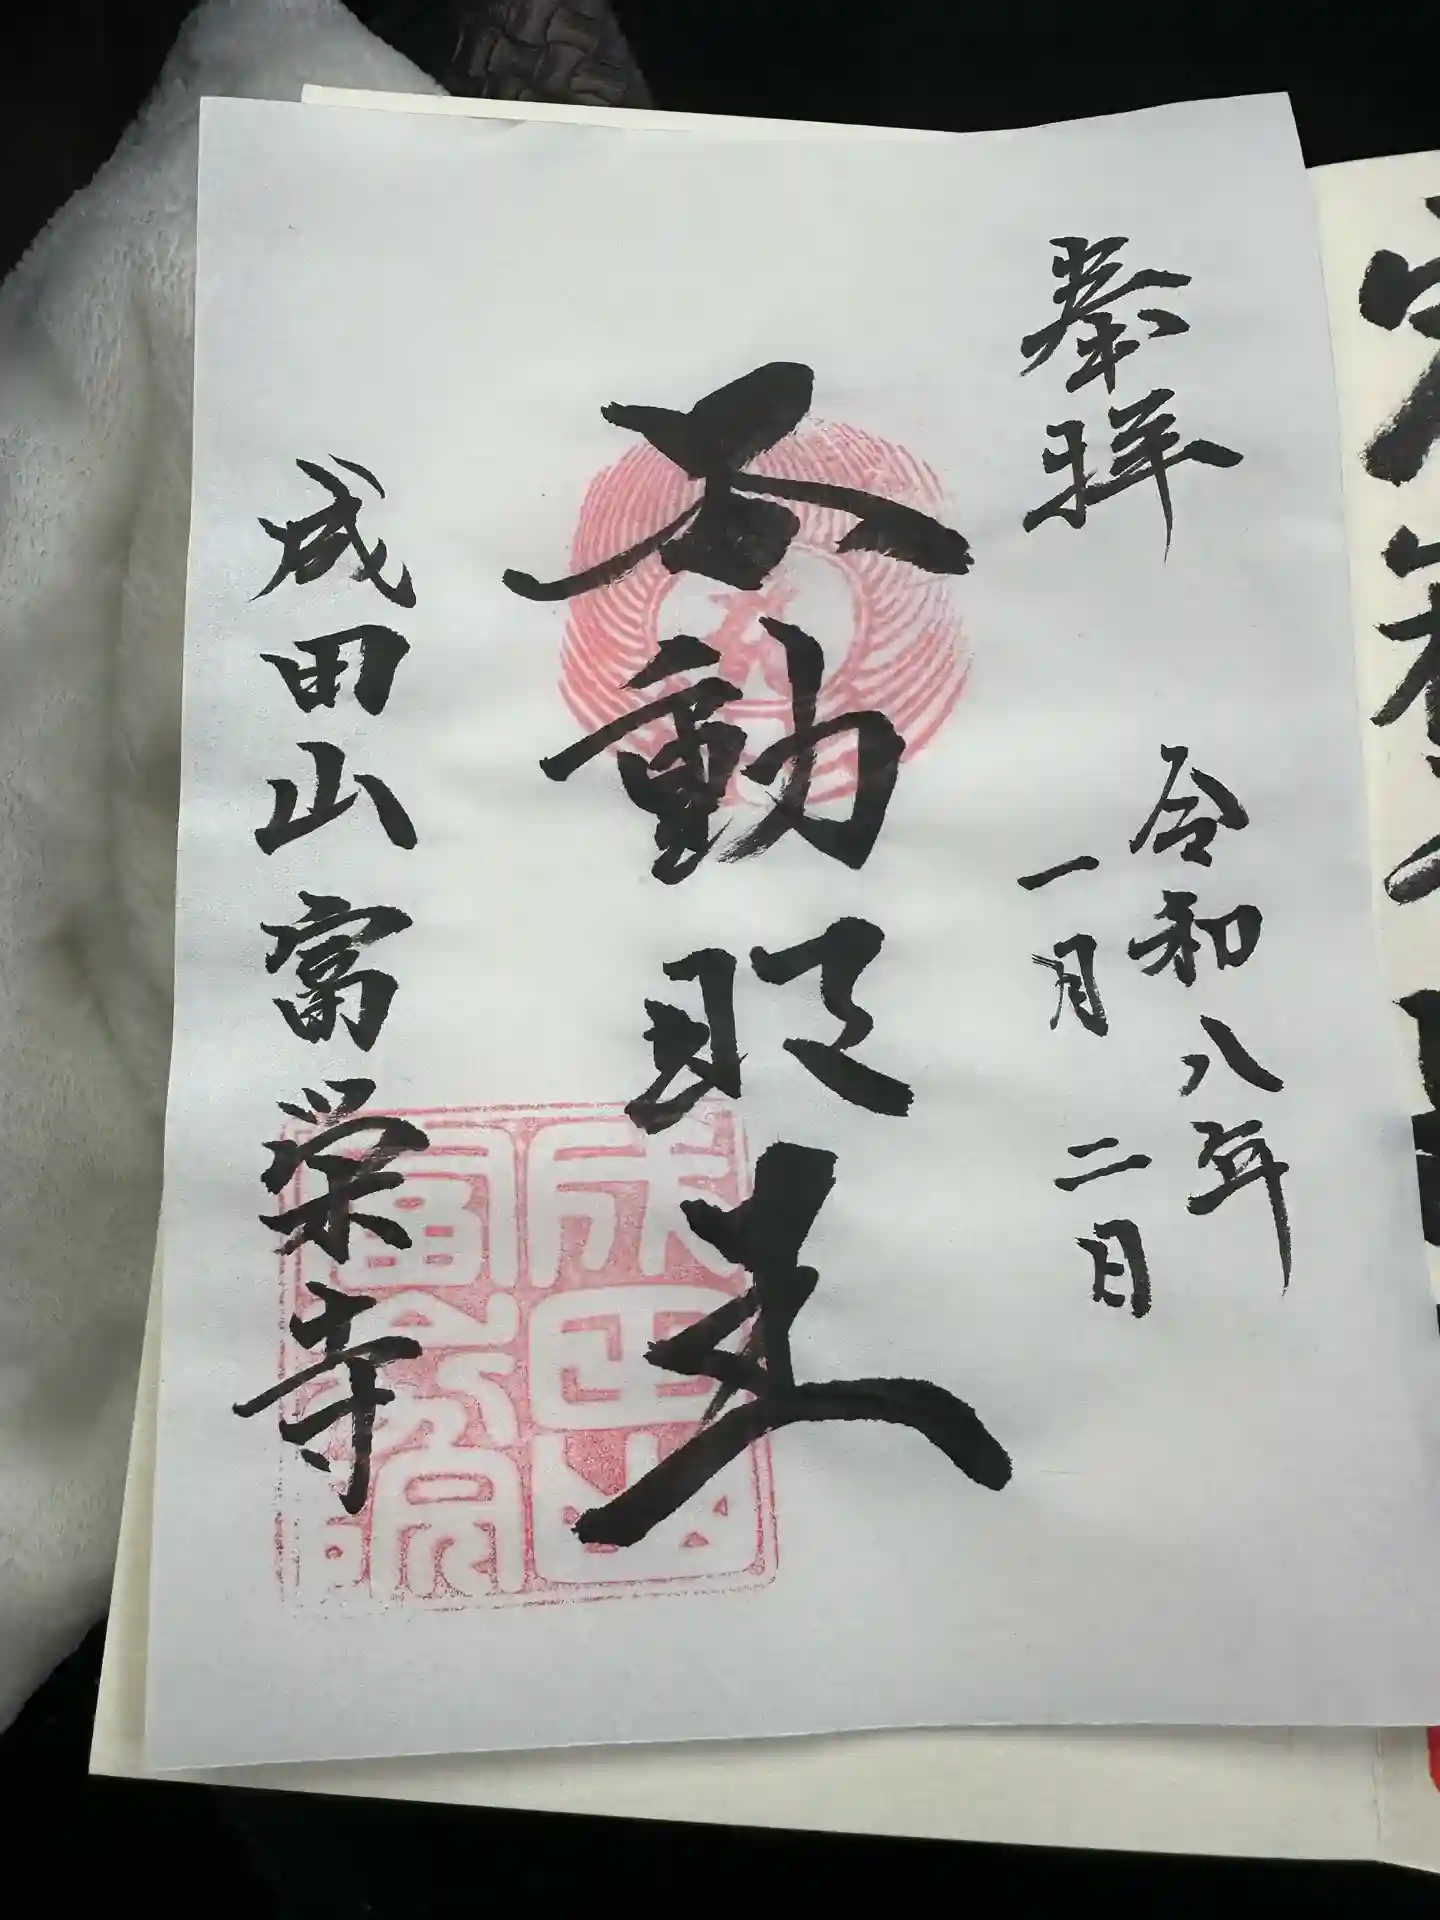 奉拝
令和八年
一月二日
不動明王
成田山富栄寺
成田山